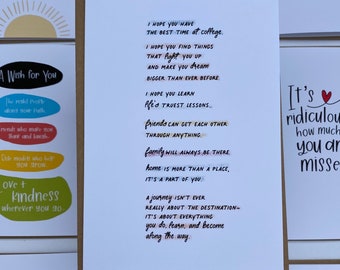 A Wish for You
love + kindness
wherever you go.
I HOPE YOU HAVE
THE BEST TIME at college.
I HOPE YOU FIND THINGS
THAT light YOU UP
AND MAKE YOU dream
BIGGER THAN EVER BEFORE.
I HOPE YOU LEARN
life's TRUEST LESSONS...
friends CAN GET EACH OTHER
THROUGH ANYTHING.
family WILL ALWAYS BE THERE.
home IS MORE THAN A PLACE,
IT'S A PART OF YOU.
A journey ISN'T EVER
REALLY ABOUT THE DESTINATION—
IT'S ABOUT EVERYTHING
you do, learn, and become
along the way.
It's
ridiculou
how much
you are
misse